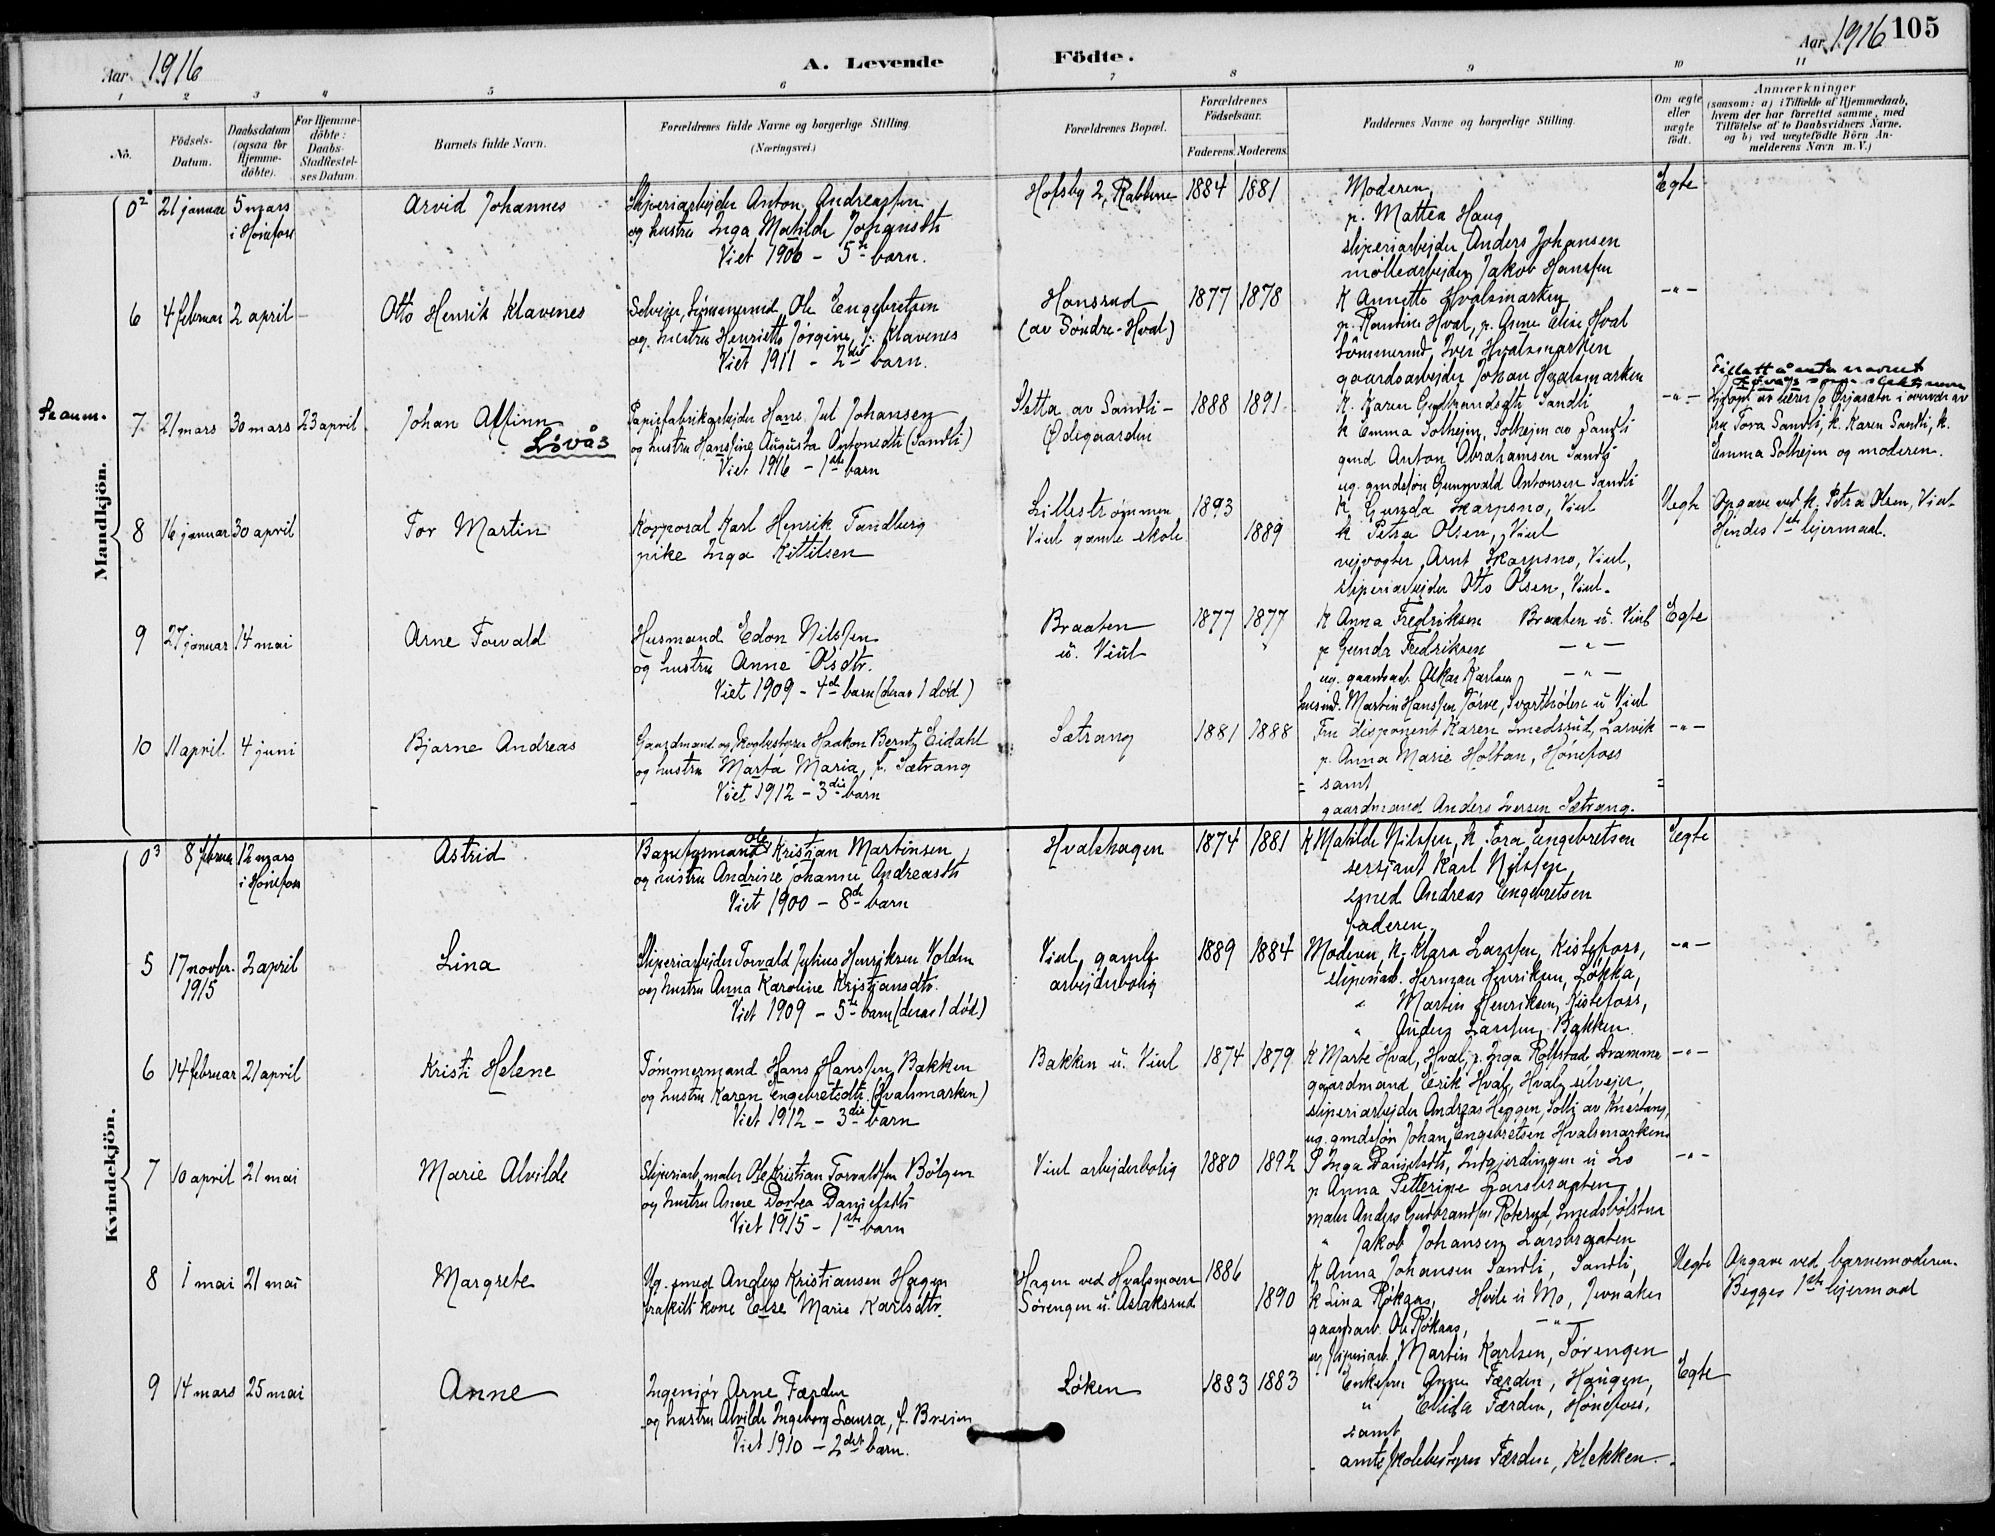 Aar 1916
A. Levende Födte.
Aar 1916 105
1 2 3 4 5 6 7 8 9 10 11
No.
Födsels-Datum.
Daabsdatum (ogsaa for Hjemme-döbte).
For Hjemme-döbte: Daabs-Stadfæstel-ses Datum.
Barnets fulde Navn.
Forældrenes fulde Navne og borgerlige Stilling.
(Næringsvei.)
Forældrenes Bopæl.
Forældrenes Födselsaar.
Faderens. Moderens.
Faddernes Navne og borgerlige Stilling.
Om ægte eller uægte födt.
Anmærkninger
(saasom: a) i Tilfælde af Hjemmedaab,
hvem der har forrettet samme, med
Tilføielse af to Daabsvidners Navne.
og b) ved uægtefødte Börn An-
melderens Navn m. V.)
Mandkjön.
0² 21 januar 5 mars i Hönefoss
Arvid Johannes
Sliperiarbejder Anton Andreassen
og hustru Inga Matilde Johansdtr
Viet 1906 - 5te barn.
Hofsby 2, Rabbene 1884 1881
Moderen,
p. Mattea Haug
sliperiarbejder Anders Johansen
møllearbejder Jakob Hanssen
Egte
6 4 februar 2 april
Otto Henrik Klavenes
Selveier, Ole Engebretsen
og hustru Henriette Jørgine, f. Klavenes
Viet 1911 - 2det barn.
Honsrud
(av Søndre-Hval)
1877 1878
K Annette Hvalsmarken
p. Hval, p. Anne Elise Hval
Tömmermd. Iver Hvalsmarken
gaardsarbejder Johan Hvalsmarken
-"-
7 21 mars 30 mars 23 april
Johan Alfinn
Lövås
Papirfabrikarbejder Hans Jul Johansen
og hustru Hansine Augusta Antonsdtr (Sandli)
Viet 1916 - 1ste barn
Sletta av Sandli-
Ødegaarden
1888 1891
K. Karen Gulbrandsdtr Sandli
k Emma Solhejm, Solhejm av Sandli
gmd Anton Abrahamsen Sandli
ug. gmdssøn Gunvald Antonsen Sandli
-"-
Tillatt å anta navnet
Lövås som slektsnavn
fru Tora Sandli, k. Karen Sandli, k.
Emma Solhejm og moderen.
8 16 januar 30 april
Tor Martin
Korporal Karl Henrik Tandberg
pike Inga Kittilsen
Lillestrømmen
Viul gamle skole
1893
1889
K Gunda Skarpsno, Viul
k Petra Olsen, Viul
vejvogter Arnt Skarpsno, Viul,
sliperiarbejder Otto Olsen, Viul.
Uegte
Opgave ved k. Petra Olsen, Viul
Hendes 1ste lejermaal.
9 27 januar 14 mai
Arne Torvald
Husmand Edon Nilssen
og hustru Anne Olsdtr.
Viet 1909 - 4de barn (derav 1 død)
Braaten
u. Viul
1877 1877
K Anna Fredriksen Braaten u. Viul
p Gunda Fredriksen -"-
ug. gaardsarb. Oskar Karlsen -"-
husmd. Martin Hanssen Tørve, Svarthölen u Viul
Egte
10 11 april. 4 juni
Bjarne Andreas
Gaardmand og skolebestyrer Haakon Bernt Eidahl
og hustru Marta Maria, f. Sætrang
Viet 1912 - 3die barn
Sætrang
1881 1888
Fru disponent Karen Smedsrud, Larvik
p. Anna Marie Holtan, Hönefoss
samt
gaardmand Anders Iversen Sætrang.
-"-
Kvindekjön.
0³ 8 februar 12 mars i Hönefoss
Astrid
Banevogtsmand Ole Kristian Martinsen
og hustru Andrine Johanne Andreasdtr
Viet 1900 - 8de barn
Hvalshagen
1874 1881
K Matilde Nilssen, k Tora Engebretsen
sersjant Karl Nilssen
smed Andreas Engebretsen
faderen.
Egte
5 17 novbr. 1915 2 april
Lina
Sliperiarbejder Torvald Julius Henriksen Volden
og hustru Anna Karoline Kristiansdtr.
Viet 1909 - 5te barn (derav 1 død)
Viul gamle
arbejderbolig
1889 1884
Moderen, k. Klara Larssen, Kistefoss,
sliperiarb. Herman Henriksen, Løkka,
" Martin Henriksen, Kistefoss,
" Anders Larssen, Bakken.
-"-
6 14 februar 21 april
Kristi Helene
Tømmermand Hans Hanssen Bakken
og hustru Karen Engebretsdtr. (Hvalsmarken)
Viet 1912 - 3die barn
Bakken u. Viul
1874 1879
K Marte Hval, Hval, p. Inga Rolstad Drammen
gaardmand Erik Hval, Hval, selvejer,
sliperiarbejder Andreas Heggen, Solli av Knestang,
ug. gmdssøn Johan Engebretsen Hvalsmarken
-"-
7 10 april 21 mai
Marie Alvilde
Sliperiarb, maler Ole Kristian Torvaldsen Bølgen
og hustru Anne Dortea Danielsdtr
Viet 1915 - 1ste barn
Viul arbejderbolig
1880 1892
P Inga Danielsdtr, Intgjerdingen u Lo
p Anna Petterine Larsbraaten
maler Anders Gudbrandsen Roterud, Smedsbølstua
" Jakob Johansen Larsbraaten
-"-
8 1 mai 21 mai
Margrete
Ug. smed Anders Kristiansen Hagen
fraskilt kone Else Marie Karlsdtr.
Hagen ved Hvalsmoen
Sørengen u. Aslaksrud
1886
1890
K Anna Johansen Sandli, Sandli,
k Lina Røkaas, Hvile u Mo, Jevnaker
gaardsarb. Ole Røkaas, -"-
ug sliperiarb. Martin Karlsen, Sørengen
Uegte
Opgave ved barnemoderen.
Begges 1ste lejermaal
9 14 mars 25 mai
Anne
Ingeniør Arne Færden
og hustru Alvilde Ingeborg Laura, f. Breien
Viet 1910 - 2det barn.
Løken
1883 1883
Enkefru Anne Færden, Haugen,
" Elida Færden, Hönefoss,
samt
amtsskolebestyrer Færden, Klekken.
Egte